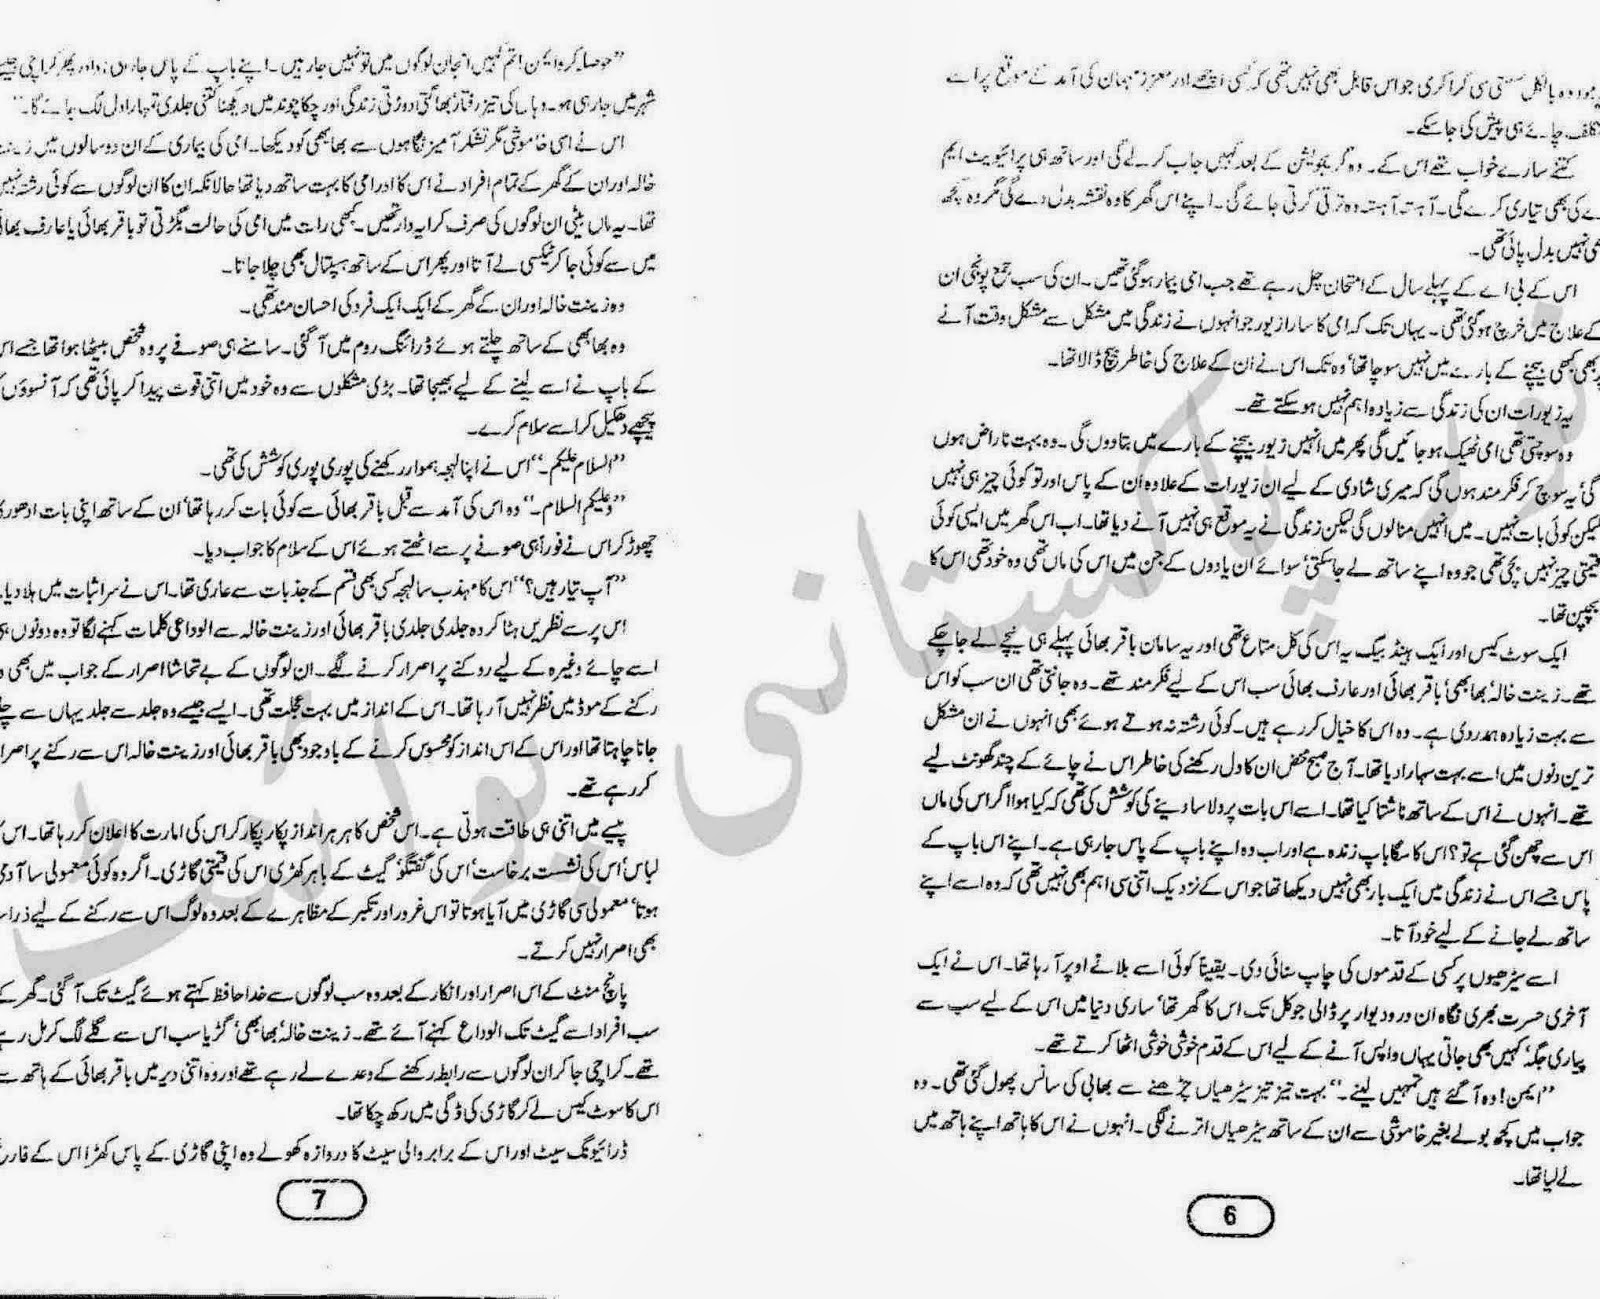 موجود وہ بالکل سستی سی کراکری جو اس قابل بھی نہیں تھی کہ کسی اچھے اور معزز مہمان کی آمد کے موقع پر اسے
تکلف چائے ہی پیش کی جاسکے۔
کتنے سارے خواب تھے اس کے۔ وہ گریجویشن کے بعد کہیں جاب کرلے گی اور ساتھ ہی پرائیویٹ ایم
اے کی بھی تیاری کرے گی۔ آہستہ آہستہ وہ ترقی کرتی جائے گی۔ اپنے اس گھر کا وہ نقشہ بدل دے گی مگر وہ کچھ
بھی نہیں بدل پائی تھی۔
اس کے بی اے کے پہلے سال کے امتحان چل رہے تھے جب امی بیمار ہوگئی تھیں۔ ان کی سب جمع پونجی ان
کے علاج میں خرچ ہوگئی تھی۔ یہاں تک کہ امی کا سارا زیور جو انہوں نے زندگی میں مشکل سے مشکل وقت آنے
پر بھی کبھی بیچنے کے بارے میں نہیں سوچا تھا‘ وہ تک اس نے ان کے علاج کی خاطر بیچ ڈالا تھا۔
یہ زیورات ان کی زندگی سے زیادہ اہم نہیں ہوسکتے تھے۔
وہ سوچتی تھی امی ٹھیک ہو جائیں گی پھر میں انہیں زیور بیچنے کے بارے میں بتادوں گی۔ وہ بہت ناراض ہوں
گی‘ یہ سوچ کر فکر مند ہوں گی کہ میری شادی کے لیے ان زیورات کے علاوہ ان کے پاس اور تو کوئی چیز ہی نہیں
لیکن کوئی بات نہیں۔ میں انہیں منالوں گی لیکن زندگی نے یہ موقع ہی نہیں آنے دیا تھا۔ اب اس گھر میں ایسی کوئی
قیمتی چیز نہیں بچی تھی جو وہ اپنے ساتھ لے جاسکتی‘ سوائے ان یادوں کے جن میں اس کی ماں تھی وہ خود تھی اس کا
بچپن تھا۔
ایک سوٹ کیس اور ایک ہینڈ بیگ یہ اس کی کل متاع تھی اور یہ سامان باقر بھائی پہلے ہی نیچے لے جاچکے
تھے۔ زینت خالہ‘ بھابھی‘ باقر بھائی اور عارف بھائی سب اس کے لیے فکر مند تھے۔ وہ جانتی تھی ان سب کو اس
سے بہت زیادہ ہمدردی ہے۔ وہ اس کا خیال کررہے ہیں۔ کوئی رشتہ نہ ہوتے ہوئے بھی انہوں نے ان مشکل
ترین دنوں میں اسے بہت سہارا دیا تھا۔ آج صبح محض ان کا دل رکھنے کی خاطر اس نے چائے کے چند گھونٹ لیے
تھے۔ انہوں نے اس کے ساتھ ناشتا کیا تھا۔ اسے اس بات پر دلاسا دینے کی کوشش کی تھی کہ کیا ہوا اگر اس کی ماں
اس سے چھن گئی ہے تو؟ اس کا سگا باپ زندہ ہے اور اب وہ اپنے باپ کے پاس جارہی ہے۔ اپنے اس باپ کے
پاس جسے اس نے زندگی میں ایک بار بھی نہیں دیکھا تھا جو اس کے نزدیک اتنی سی اہم بھی نہیں تھی کہ وہ اسے اپنے
ساتھ لے جانے کے لیے خود آتا۔
اسے سیڑھیوں پر کسی کے قدموں کی چاپ سنائی دی۔ یقیناً کوئی اسے بلانے اوپر آرہا تھا۔ اس نے ایک
آخری حسرت بھری نگاہ ان درودیوار پر ڈالی جو کل تک اس کا گھر تھا‘ ساری دنیا میں اس کے لیے سب سے
پیاری جگہ‘ کہیں بھی جاتی یہاں واپس آنے کے لیے اس کے قدم خوشی خوشی اٹھا کرتے تھے۔
”ایمن! وہ آگئے ہیں تمہیں لینے۔“ بہت تیز تیز سیڑھیاں چڑھنے سے بھابی کی سانس پھول گئی تھی۔ وہ
جواب میں کچھ بولے بغیر خاموشی سے ان کے ساتھ سیڑھیاں اترنے لگی۔ انہوں نے اس کا ہاتھ اپنے ہاتھ میں
لے لیا تھا۔
6
”حوصلہ کرو ایمن! تم کہیں انجان لوگوں میں تو نہیں جارہیں۔ اپنے باپ کے پاس جارہی ہو اور پھر کراچی جیسے
شہر میں جارہی ہو۔ وہاں کی تیز رفتار‘ بھاگتی دوڑتی زندگی اور چکاچوند میں دیکھنا کتنی جلدی تمہارا دل لگ جائے گا۔“
اس نے اسی خاموشی مگر تشکر آمیز نگاہوں سے بھابھی کو دیکھا۔ امی کی بیماری کے ان دو سالوں میں زینت
خالہ اور ان کے گھر کے تمام افراد نے اس کا اور امی کا بہت ساتھ دیا تھا حالانکہ ان کا ان لوگوں سے کوئی رشتہ نہیں
تھا۔ یہ ماں بیٹی ان لوگوں کی صرف کرایہ دار تھیں۔ کبھی رات میں امی کی حالت بگڑتی تو باقر بھائی یا عارف بھائی
میں سے کوئی جاکر ٹیکسی لے آتا اور پھر اس کے ساتھ ہسپتال بھی چلا جاتا۔
وہ زینت خالہ اور ان کے گھر کے ایک ایک فرد کی احسان مند تھی۔
وہ بھابھی کے ساتھ چلتے ہوئے ڈرائنگ روم میں آگئی۔ سامنے ہی صوفے پر وہ شخص بیٹھا ہوا تھا جسے اس
کے باپ نے اسے لینے کے لیے بھیجا تھا۔ بڑی مشکلوں سے وہ خود میں اتنی قوت پیدا کر پائی تھی کہ آنسوؤں کو
پیچھے دھکیل کر اسے سلام کرے۔
”السلام علیکم۔“ اس نے اپنا لہجہ ہموار رکھنے کی پوری پوری کوشش کی تھی۔
”وعلیکم السلام۔“ وہ اس کی آمد سے قبل باقر بھائی سے کوئی بات کررہا تھا‘ ان کے ساتھ اپنی بات ادھوری
چھوڑ کر اس نے فوراً ہی صوفے پر سے اٹھتے ہوئے اس کے سلام کا جواب دیا۔
”آپ تیار ہیں؟“ اس کا مہذب سا لہجہ کسی بھی قسم کے جذبات سے عاری تھا۔ اس نے سر اثبات میں ہلادیا۔
اس پر سے نظریں ہٹا کر وہ جلدی جلدی باقر بھائی اور زینت خالہ سے الوداعی کلمات کہنے لگا تو وہ دونوں ہی
اسے چائے وغیرہ کے لیے روکنے پر اصرار کرنے لگے۔ ان لوگوں کے بے تحاشا اصرار کے جواب میں بھی وہ
رکنے کے موڈ میں نظر نہیں آرہا تھا۔ اس کے انداز میں بہت عجلت تھی۔ ایسے جیسے وہ جلد سے جلد یہاں سے چلے
جانا چاہتا تھا اور اس کے اس انداز کو محسوس کرنے کے باوجود بھی باقر بھائی اور زینت خالہ اس سے رکنے پر اصرار
کررہے تھے۔
پیسے میں اتنی ہی طاقت ہوتی ہے۔ اس شخص کا ہر ہر انداز پکار پکار کر اس کی امارت کا اعلان کررہا تھا۔ اس کا
لباس‘ اس کی نشست برخاست‘ اس کی گفتگو‘ گیٹ کے باہر کھڑی اس کی قیمتی گاڑی۔ اگر وہ کوئی معمولی سا آدمی
ہوتا‘ معمولی سی گاڑی میں آیا ہوتا تو اس غرور اور تکبر کے مظاہرے کے بعد وہ لوگ اس سے رکنے کے لیے ذرا سا
بھی اصرار نہیں کرتے۔
پانچ منٹ کے اس اصرار اور انکار کے بعد وہ سب لوگوں سے خدا حافظ کہتے ہوئے گیٹ تک آگئی۔ گھر کے
سب افراد اسے گیٹ تک الوداع کہنے آئے تھے۔ زینت خالہ‘ بھابھی‘ گڑیا سب اس سے گلے لگ کر مل رہے
تھے۔ کراچی جاکر ان لوگوں سے رابطہ رکھنے کے وعدے لے رہے تھے اور وہ اتنی دیر میں باقر بھائی کے ہاتھ سے
اس کا سوٹ کیس لے کر گاڑی کی ڈگی میں رکھ چکا تھا۔
ڈرائیونگ سیٹ اور اس کے برابر والی سیٹ کا دروازہ کھولے وہ اپنی گاڑی کے پاس کھڑا اس کے فارغ
7
پاکستانی پوائنٹ